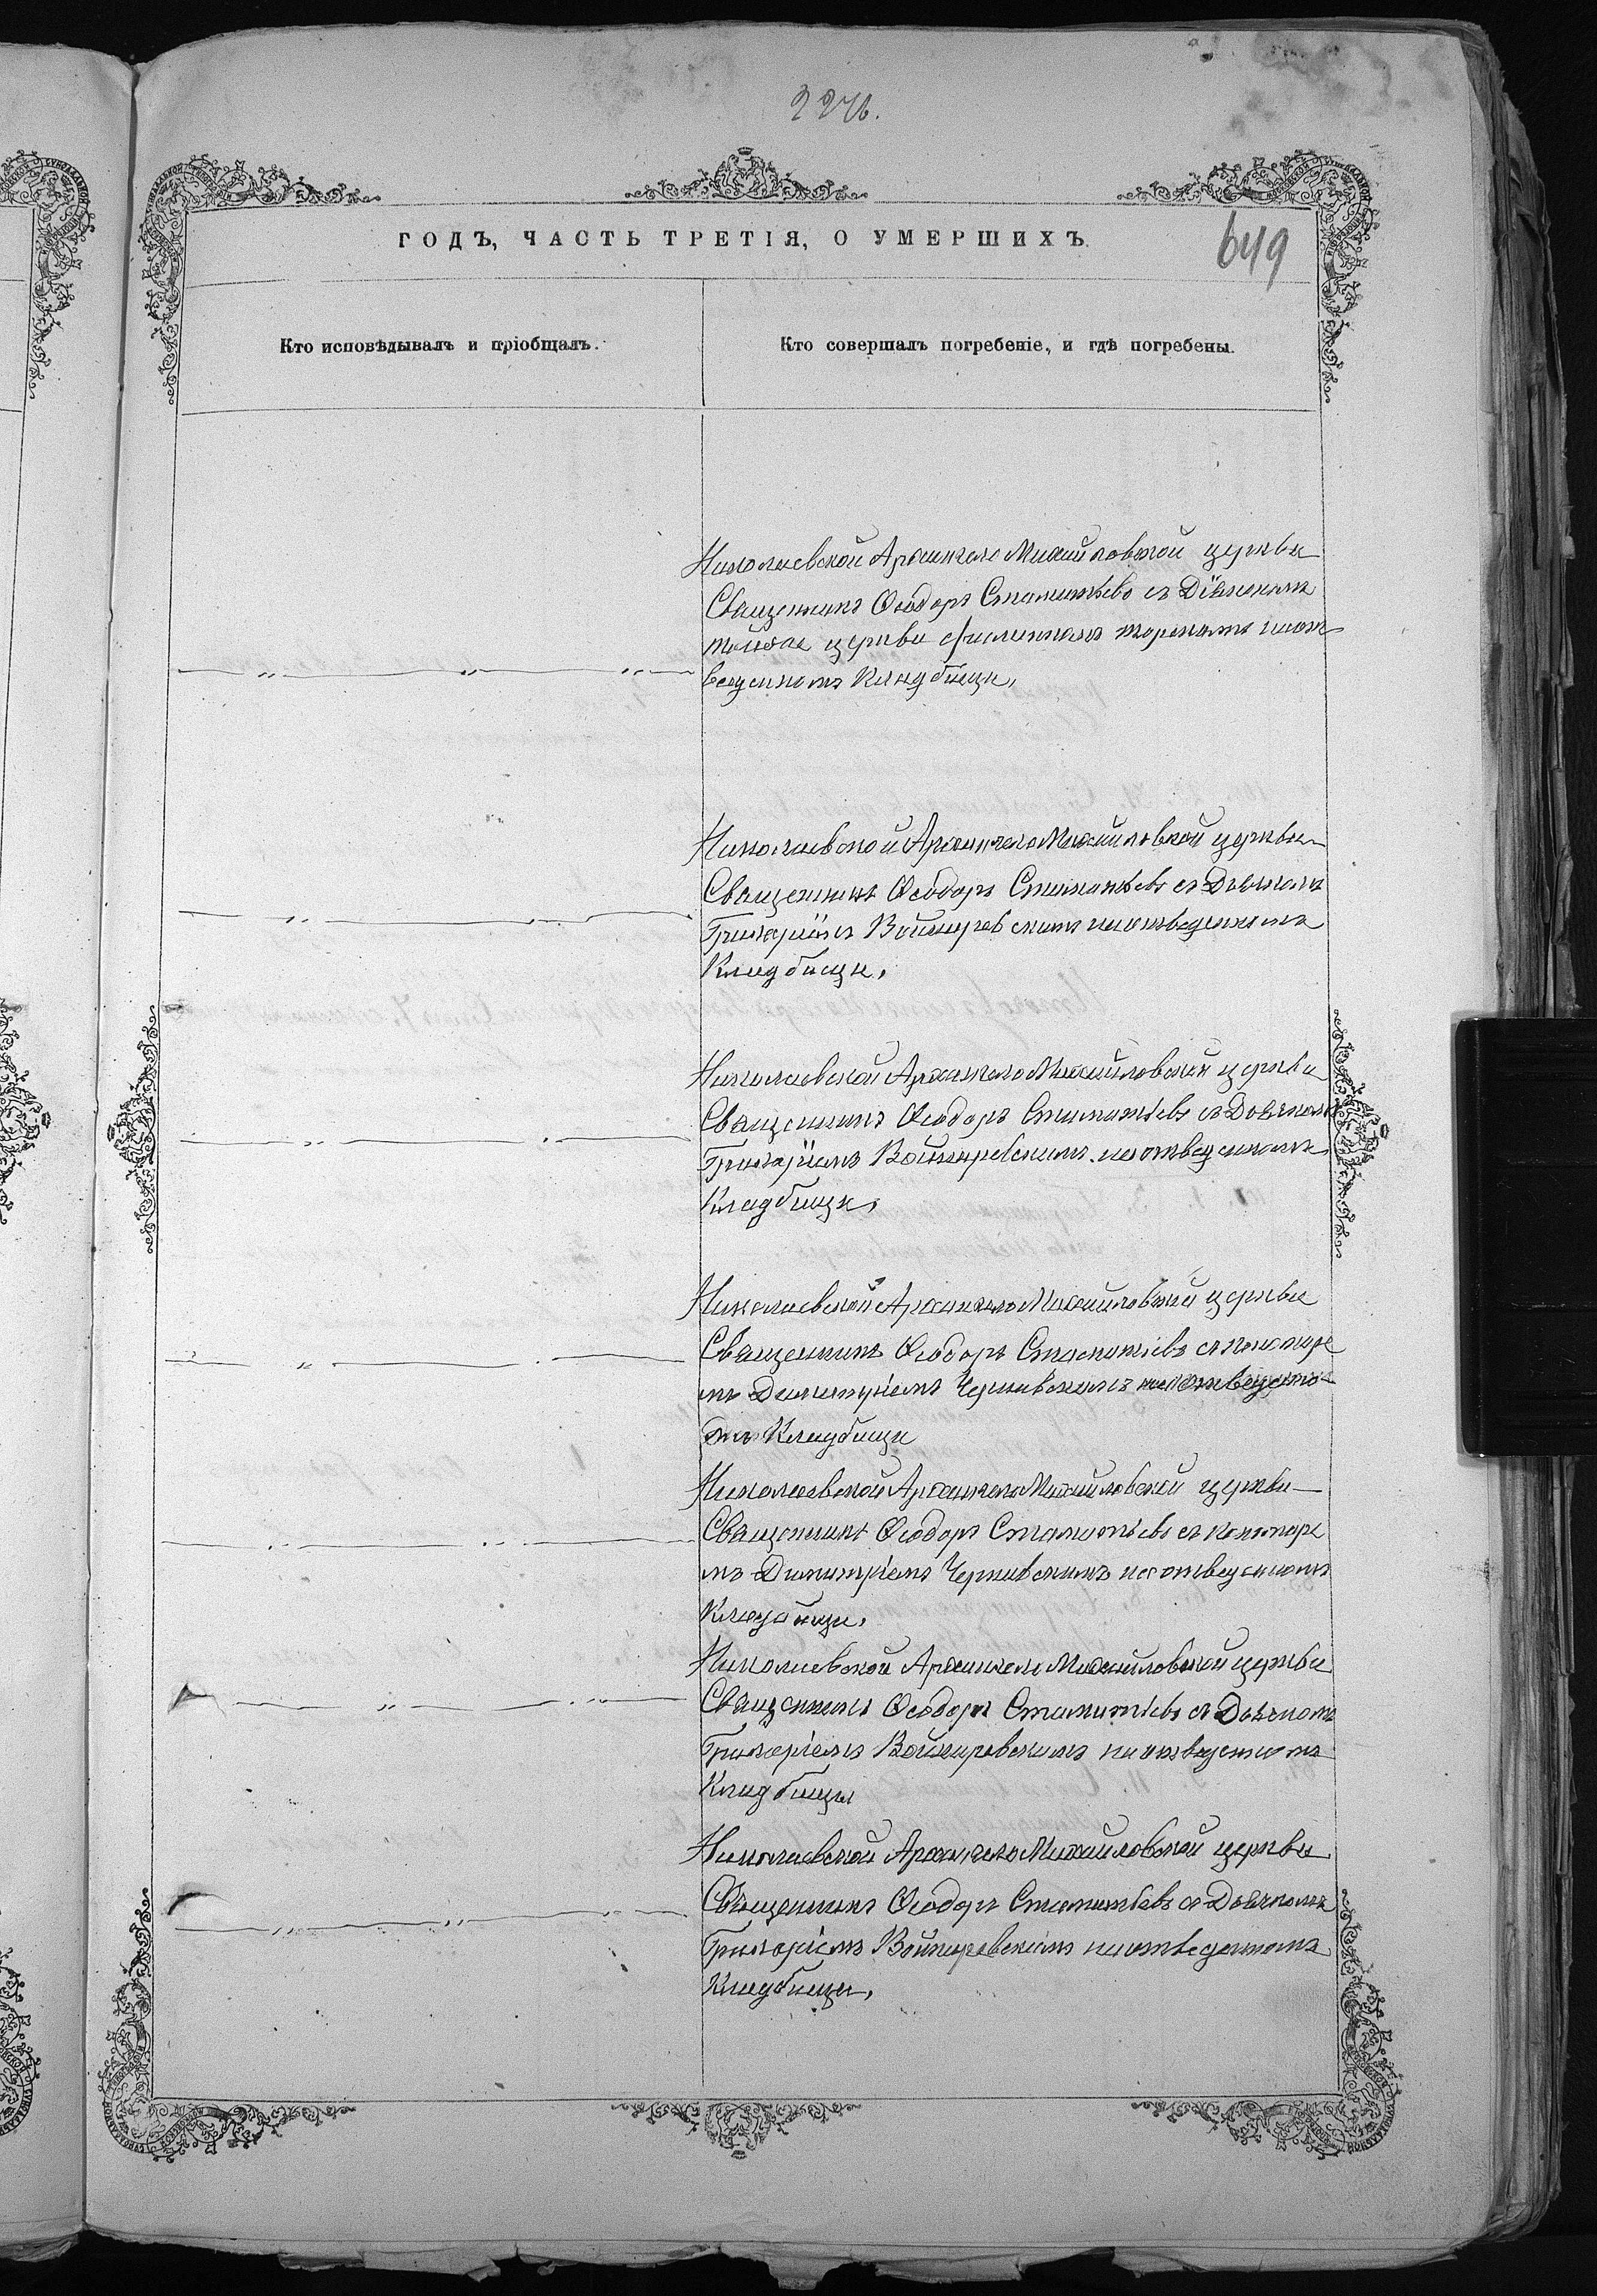 ГОДЪ, ЧАСТЬ ТРЕТІЯ, О УМЕРШИХЪ.
649
Кто исповѣдывалъ и пріобщалъ.
Кто совершалъ погребеніе, и гдѣ погребены.
Николаевской Архангело Михайловской церкви
Священникъ Ѳеодоръ Стаматьевъ съ Дьячкомъ
тойже церкви
кладбищи,
Николаевской Архангело Михайловской церкви
Священникъ Ѳеодоръ Стаматьевъ съ Дьячкомъ
Григоріемъ Войнировскимъ на отведенномъ
кладбищи,
Николаевской Архангело Михайловской церкви
Священникъ Ѳеодоръ Стаматьевъ съ Дьячкомъ
Григоріемъ Войнировскимъ на отведенномъ
кладбищи,
Николаевской Архангело Михайловской церкви
Священникъ Ѳеодоръ Стаматіевъ съ пономаре
мъ Димитріемъ Чернявскимъ на отведенно
мъ кладбищи
Николаевской Архангело Михайловской церкви
Священникъ Ѳеодоръ Стаматьевъ съ пономаре
мъ Димитріемъ Чернявскимъ на отведенномъ
кладбищи,
Николаевской Архангело Михайловской церкви
Священникъ Ѳеодоръ Стаматьевъ съ Дьячкомъ
Григоріемъ Войнировскимъ на отведенномъ
кладбищи
Николаевской Архангело Михайловской церкви
Священникъ Ѳеодоръ Стаматьевъ съ Дьячкомъ
Григоріемъ Войнировскимъ на отведенномъ
кладбищи,